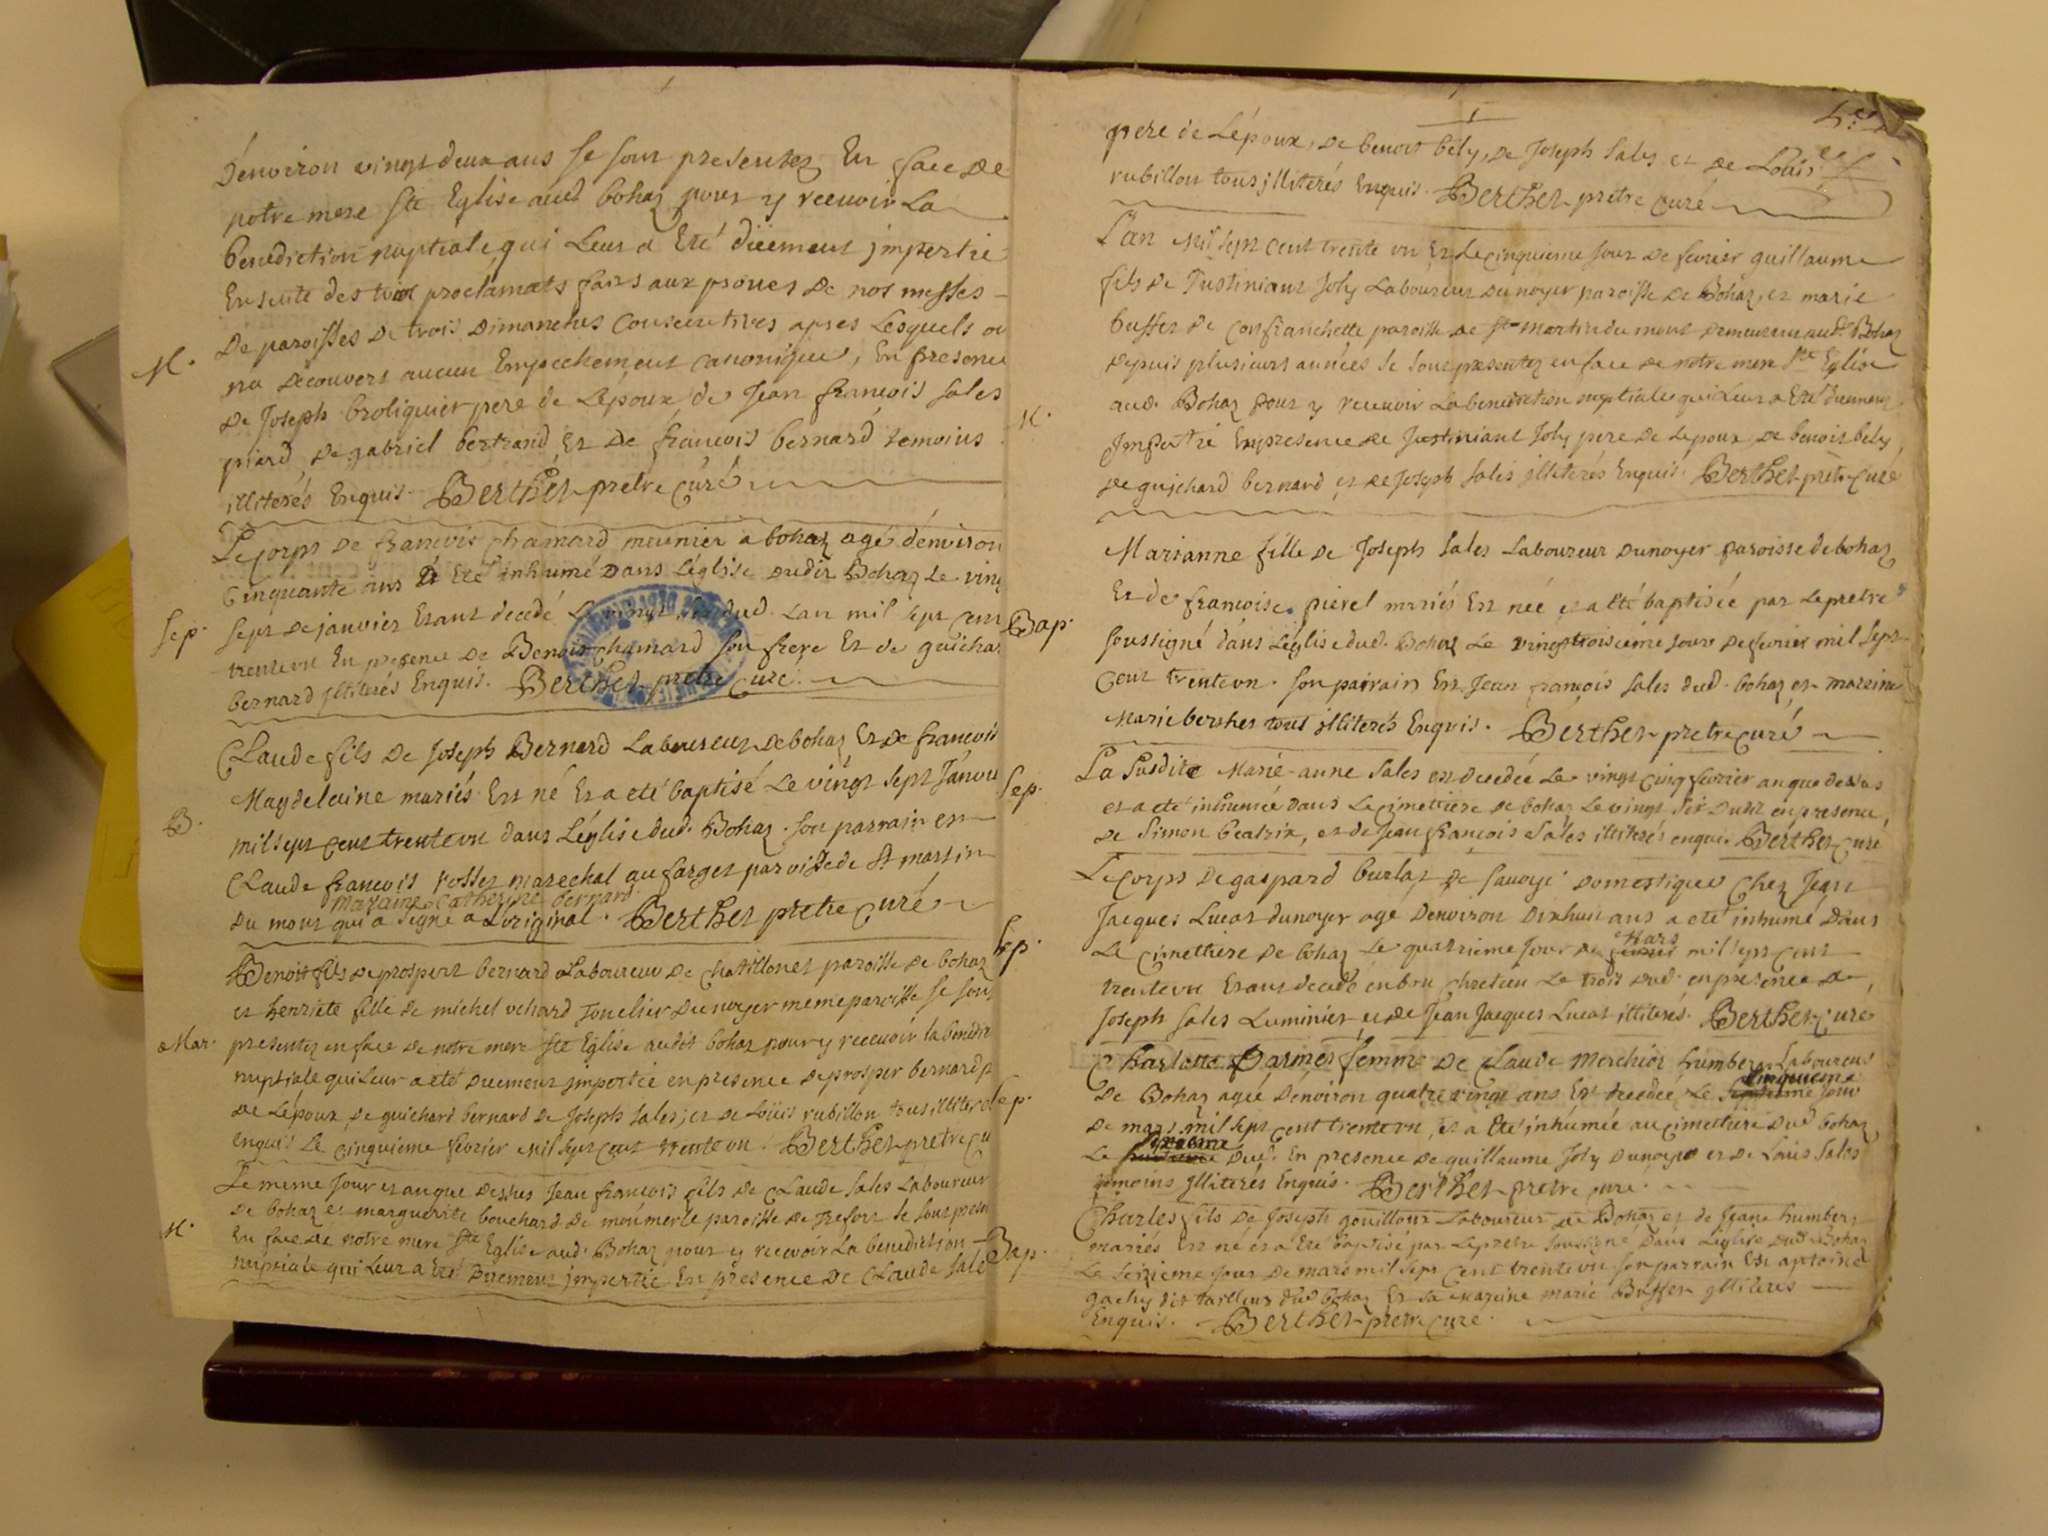 d'environ vingt deux ans se sont presentez En face de
notre mere Ste Eglise aud bohaz pour y recevoir La
benediction nuptiale qui Leur a Eté düement jmpertie
Ensuite des trois proclamats faits aux prones de nos messes
De paroisses de trois Dimanches Consecutives apres Lesquels on
M.
na decouvert aucun Empechement canonique, En presence
de Joseph broliquier pere de Lépoux de Jean francois sales
piard de gabriel bertrand Et de francois bernard temoins
illiterés Enquis. Berthet pretre curé
Le corps de francois chamard meunier a bohaz agé d'environ
Cinquante ans a Eté inhumé dans L'église dudit Bohaz le ving
Sep.
sept de janvier Etant decedé Le vingt six dud. Lan mil sept cent
trente un En presence de Benoit chamard son frere Et de guichar
bernard jlliterés Enquis. Berthet pretre curé
Claude fils de Joseph Bernard Laboureur de bohaz Et de francois
Magdelaine mariés Est né Et a eté baptisé Le vingt sept Janvi
B.
mil sept cent trente un dans L'église dud. Bohaz. Son parrain est
Claude francois rosset marechal au farges paroisse de st martin
maraine catherine bernard
du mont qui a signé a L'original. Berthet pretre curé
Benoit fils de prospert bernard Laboureur de chatillonet paroisse de bohaz
et henriete fille de michel vchard Tonelier du noyer meme paroisse se sont
Mar.
presentez en face de notre mere Ste Eglise audit bohaz pour y recevoir la benedic
nuptiale qui Leur a eté düement jmpertie en presence de prosper bernard p
de Lépoux de guichard bernard de Joseph sales, et de Loüis rubillon tous illiter
enquis Le cinquieme fevrier mil sept cent trente un. Berthet pretre cu
Le meme Jour et an que dessus Jean francois fils de Claude sales Laboureur
de bohaz et marguerite bouchard de moumerle paroisse de trefort se sont presen
M.
En face de notre mere Ste Eglise aud. Bohaz pour y recevoir La benediction
nuptiale qui Leur a Eté Duement jmpertie En presence de Claude sale
pere de Lépoux, de benoit bely, de Joseph sales et de Loüis
rubillon tous jlliterés Enquis. Berthet pretre curé
L'an mil sept cent trente un Et Le cinquieme Jour de fevrier guillaume
fils de Justiniant Joly Laboureur du noyer paroisse de Bohaz, et marie
buffet de Confranchette paroisse de St martin du mont demeurant aud. Bohaz
depuis plusieurs années se sont presentez en face de notre mere Ste Eglise
M.
aud. Bohaz pour y recevoir La benediction nuptiale qui Leur a Eté düement
jmpertie En presence de Justiniant Joly pere de Lepoux de benoit bely
de guichard bernard et de Joseph sales jlliterés Enquis. Berthet pretre curé
Marianne fille de Joseph sales Laboureur du noyer paroisse de bohaz
Et de francoise pierel mariés Est née et a Eté baptisée par Le pretre
Bap.
soussigné dans L'église dud. Bohaz Le vingt troisieme jour de fevrier mil sept
cent trente un. Son parrain Est Jean francois sales dud. bohaz et maraine
Marie berthet tous jlliterés Enquis. Berthet pretre curé
La susdite Marie-anne sales est decedée Le vingt cinq fevrier an que dessus
Sep.
et a eté inhumée dans Le cimettiere de bohaz Le vingt six dudit en presence,
de Simon beatrix, et de Jean francois sales illiterés enquis. Berthet curé
Le corps de gaspard burlat de savoye domestique chez Jean
Jacques Lucat du noyer agé d'environ dix huit ans a eté inhumé dans
Mars
Sep.
Le cimettiere de bohaz Le quatrieme Jour de fevrier mil sept cent
trente un Etant decedé en bon chretien Le trois dud. en presence de
Joseph sales Luminier et de Jean Jacques Lucat illiterés. Berthet curé
Charlotte Darmet femme de Claude Merchior humbert Laboureur
cinquieme
de Bohaz agée d'environ quatre vingt ans Est decedée Le septieme jour
Sep.
de mars mil sept cent trente un, et a Eté inhumée au cimettiere dud bohaz
sixieme
Le dud. En presence de guillaume Joly du noyer et de Loüis sales
temoins jlliterés Enquis. Berthet pretre curé.
Charles fils de Joseph gouilloux Laboureur de Bohaz et de Jeane humbert
mariés Est né et a Eté baptisé par Le pretre soussigné dans L'eglise dud Bohaz
Bap.
Le seizieme jour de mars mil sept cent trente un son parrain Est antoine
gachy dit tailleur dud bohaz Et sa maraine marie Buffet jlliterés
Enquis. Berthet pretre curé.